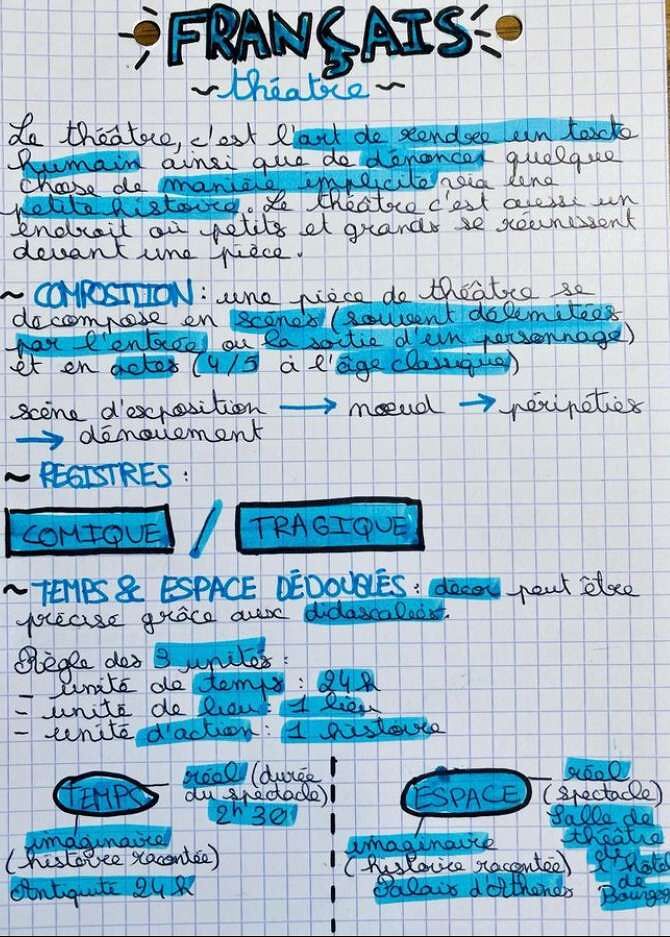 FRANÇAIS
~ théatre ~
Le théâtre, c'est l'art de rendre un texte
humain ainsi que de dénoncer quelque
chose de manière implicite via une
petite histoire. Le théâtre c'est aussi un
endroit où petits et grands se réunissent
devant une pièce.
~ COMPOSITION : une pièce de théâtre se
décompose en scènes (souvent délimitées
par l'entrée ou la sortie d'un personnage)
et en actes (4/5 à l'âge classique)
scène d'exposition → nœud → péripéties
→ dénouement
~ REGISTRES :
COMIQUE / TRAGIQUE
~ TEMPS & ESPACE DÉDOUBLÉS : décor peut être
précisé grâce aux didascalies.
Règle des 3 unités :
- unité de temps : 24 h
- unité de lieu : 1 lieu
- unité d'action : 1 histoire
TEMPS
réel (durée
du spectacle)
2h 30
imaginaire
(histoire racontée)
Antiquité 24 h
ESPACE
réel
(spectacle)
Salle de
théâtre
l'hôtel
de
Bourges
imaginaire
(histoire racontée)
Palais d'Athènes